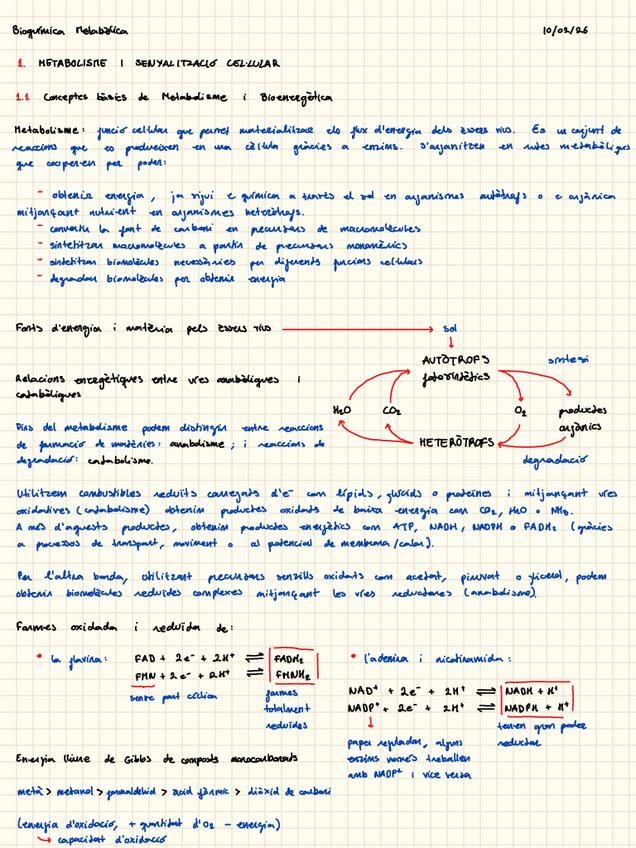 Bioquímica Metabòlica
10/02/26
1. METABOLISME I SENYALITZACIÓ CEL·LULAR
1.1 Conceptes bàsics de Metabolisme i Bioenergètica
Metabolisme: funció cel·lular que permet materialitzar els flux d'energia dels éssers vius. És un conjunt de
reaccions que es produeixen en una cèl·lula gràcies a enzims. S'organitzen en rutes metabòliques
que cooperen per poder:
- obtenir energia, ja sigui e química a través el sol en organismes autòtrofs o e orgànica
mitjançant nutrient en organismes heteròtrofs.
- convertir la font de carboni en precursors de macromolècules
- sintetitzar macromolècules a partir de precursors monomèrics
- sintetitzar biomolècules necessàries per diferents funcions cel·lulars
- degradar biomolècules per obtenir energia
Fonts d'energia i matèria pels éssers vius
sol
AUTÒTROFS
fotosintètics
síntesi
Relacions energètiques entre vies anabòliques i
catabòliques
H2O
CO2
O2
productes
orgànics
HETERÒTROFS
degradació
Dins del metabolisme podem distingir entre reaccions
de formació de matèries: anabolisme; i reaccions de
degradació: catabolisme.
Utilitzem combustibles reduïts carregats d'e- com lípids, glúcids o proteïnes i mitjançant vies
oxidatives (catabolisme) obtenim productes oxidats de baixa energia com CO2, H2O o NH3.
A més d'aquests productes, obtenim productes energètics com ATP, NADH, NADPH o FADH2 (gràcies
a processos de transport, moviment o al potencial de membrana/calor).
Per l'altra banda, utilitzant precursors senzills oxidats com acetat, piruvat o glicerol, podem
obtenir biomolècules reduïdes complexes mitjançant les vies reductores (anabolisme).
Formes oxidada i reduïda de:
• la flavina:
FAD + 2e- + 2H+ ⇌ FADH2
FMN + 2e- + 2H+ ⇌ FMNH2
sense part
formes
totalment
reduïdes
• l'adenina i nicotinamida:
NAD+ + 2e- + 2H+ ⇌ NADH + H+
NADP+ + 2e- + 2H+ ⇌ NADPH + H+
tenen gran poder
reductor
paper regulador, alguns
enzims només treballen
amb NADP+ i vice versa
Energia lliure de Gibbs de composts monocarbonats
metà > metanol > formaldehid > àcid fòrmic > diòxid de carboni
(energia d'oxidació, + quantitat d'O2 - energia)
capacitat d'oxidació